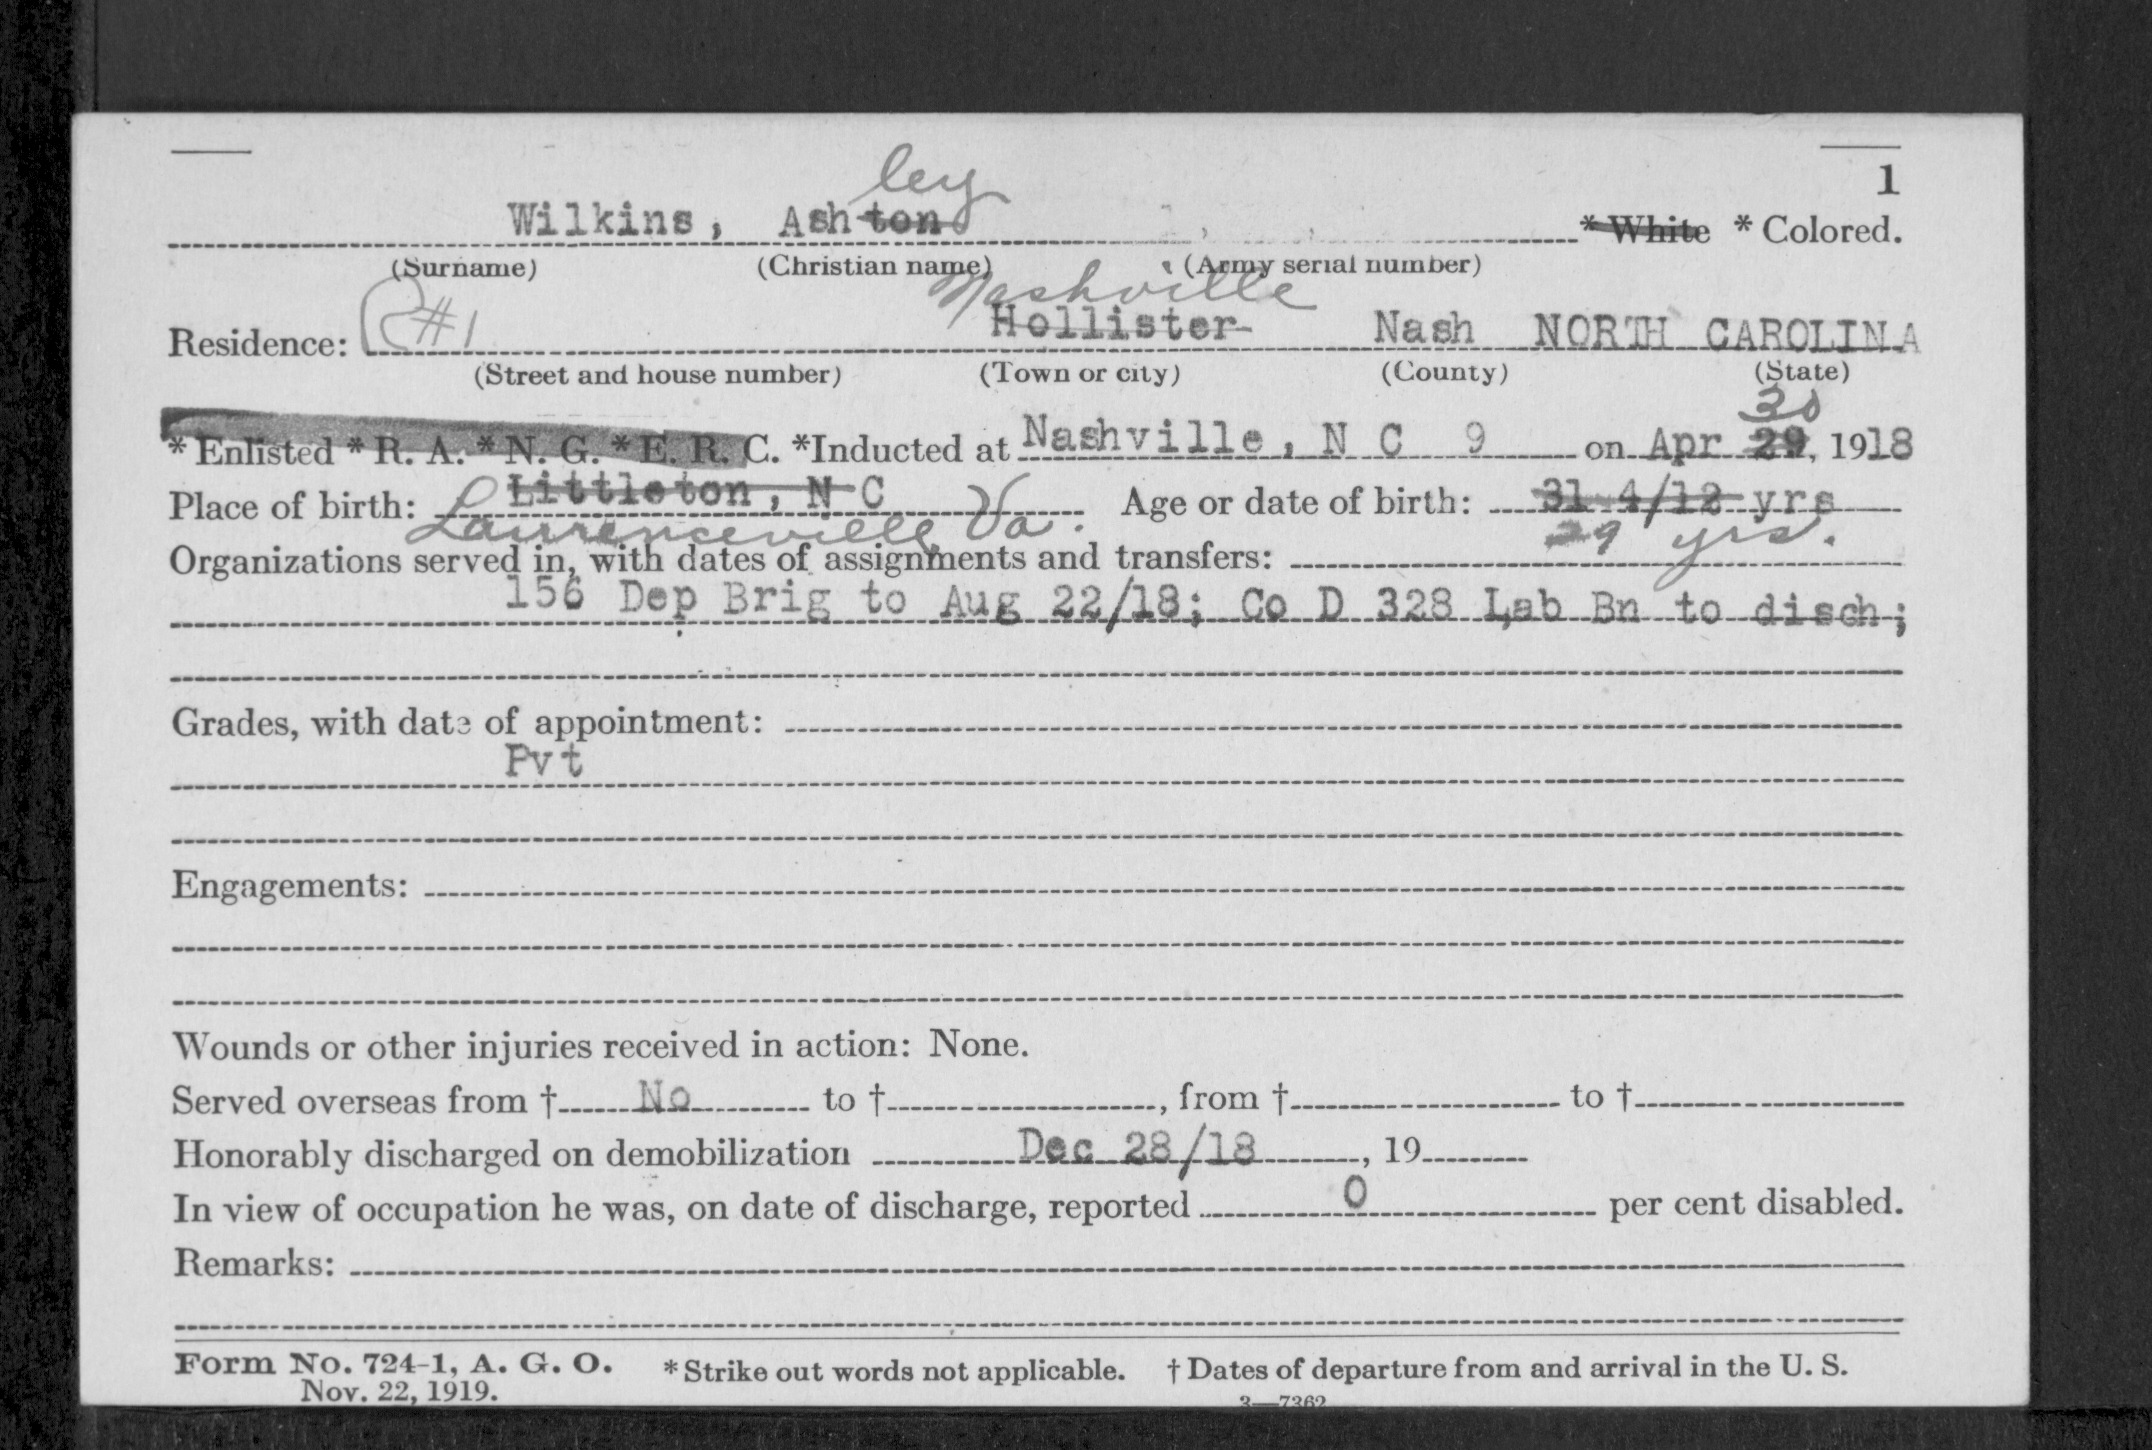 ley
1
Wilkins, Ashton *White *Colored.
(Surname) (Christian name) (Army serial number)
Nashville
Residence: R#1 Hollister Nash NORTH CAROLINA
(Street and house number) (Town or city) (County) (State)
30
*Enlisted *R. A. *N. G. *E. R. C. *Inducted at Nashville, N C 9 on Apr 29, 1918
Place of birth: Littleton, N C Age or date of birth: 31 4/12 yrs
Lawrenceville Va. 29 yrs.
Organizations served in, with dates of assignments and transfers:
156 Dep Brig to Aug 22/18; Co D 328 Lab Bn to disch;
Grades, with date of appointment:
Pvt
Engagements:
Wounds or other injuries received in action: None.
Served overseas from † No to †, from † to †
Honorably discharged on demobilization Dec 28/18, 19
In view of occupation he was, on date of discharge, reported 0 per cent disabled.
Remarks:
Form No. 724-1, A. G. O. *Strike out words not applicable. †Dates of departure from and arrival in the U. S.
Nov. 22, 1919.
3—7362